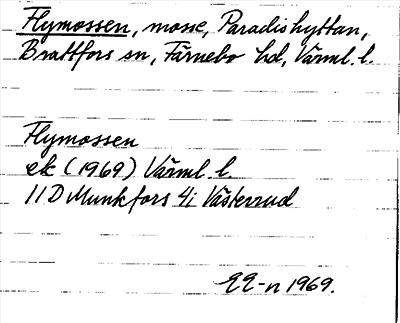 Flymossen, mosse, Paradishyttan,
Brattfors sn, Färnebo hd, Värml. l.
Flymossen
ek (1969) Värml. l.
11D Munkfors 4i Västerrud
EE-n 1969.